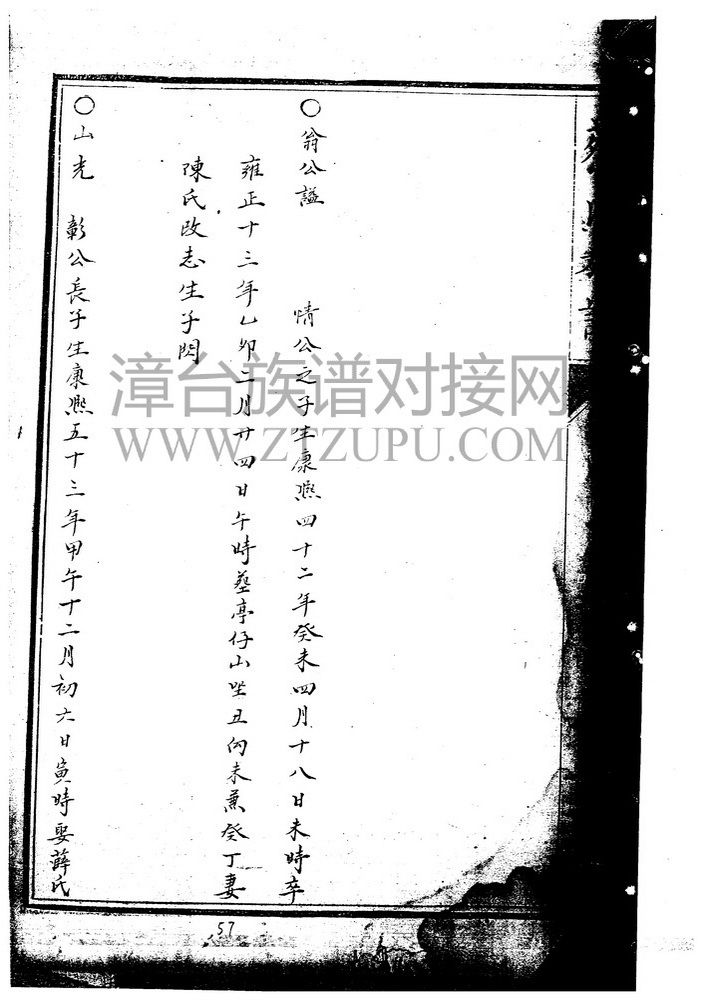 ○翁公謚 情公之子生康熙四十二年癸未四月十八日未時卒
雍正十三年乙卯二月廿四日午時塟亭仔山坐丑向未兼癸丁妻
陳氏改志生子閃
○山光 彰公長子生康熙五十三年甲午十二月初六日寅時娶薛氏
漳台族谱对接网
WWW.ZTZUPU.COM
57